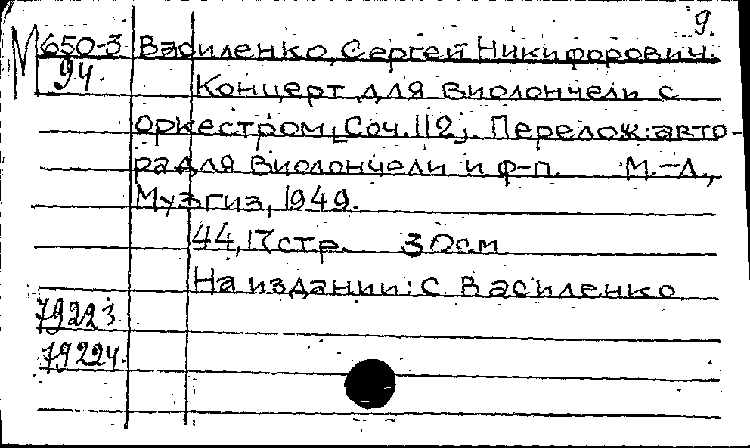 9.
М 650-3 Василенко, Сергей Никифорович.
94. Концерт для виолончели с
оркестром, Соч. 112. Перелож. авто-
ра для виолончели и ф-п. М.-Л.,
Музгиз, 1949.
44, 17 стр. 30 см
На издании: С Василенко
79223
79224.